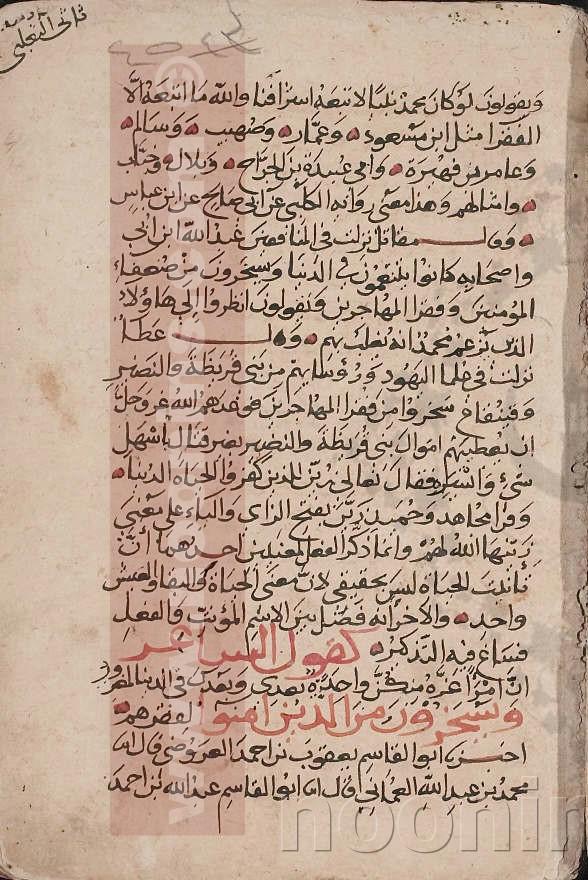 ثاني الثعلبي
ويقولون لو كان محمد نبيا لاتبعه اشرافنا والله ما اتبعه الا
الفقرا مثل ابن مسعود وعمار وصهيب وسالم
وعامر بن فهيرة وابي عبيدة بن الجراح وبلال وخباب
وامثالهم وهذا معنى رواية الكلبي عن ابي صالح عن ابن عباس
وقال مقاتل نزلت في المنافقين عبد الله ابن ابي
واصحابه كانوا يتنعمون في الدنيا ويسخرون من ضعفاء
المؤمنين وفقرا المهاجرين ويقولون انظروا الى هاؤلاء
الذين يزعم محمد انه يغلب بهم وقال عطا
نزلت في علما اليهود ورؤسايهم من بني قريظة والنضير
وقينقاع سخروا من فقرا المهاجرين فوعدهم الله عز وجل
ان يعطيهم اموال بني قريظة والنضير بغير قتال باسهل
شيء وايسره فقال تعالى زين للذين كفروا الحياة الدنيا
وقرا مجاهد وحميد زين بفتح الزاي والياء على معنى
زينها الله لهم وانما ذكر الفعل لمعنيين احدهما ان
تانيث الحياة ليس بحقيقي لان معنى الحياة والبقا والعيش
واحد والاخر انه فصل بين الاسم المؤنث والفعل
فساغ فيه التذكير كقول الشاعر
ان امرأ غره منكن واحدة بعدي وبعدك في الدنيا لمغرور
ويسخرون من الذين امنوا لفقرهم
اخبرنا ابو القاسم يعقوب بن احمد العروضي قال انا
محمد بن عبد الله العماني قال انا ابو القاسم عبد الله بن احمد
noonin